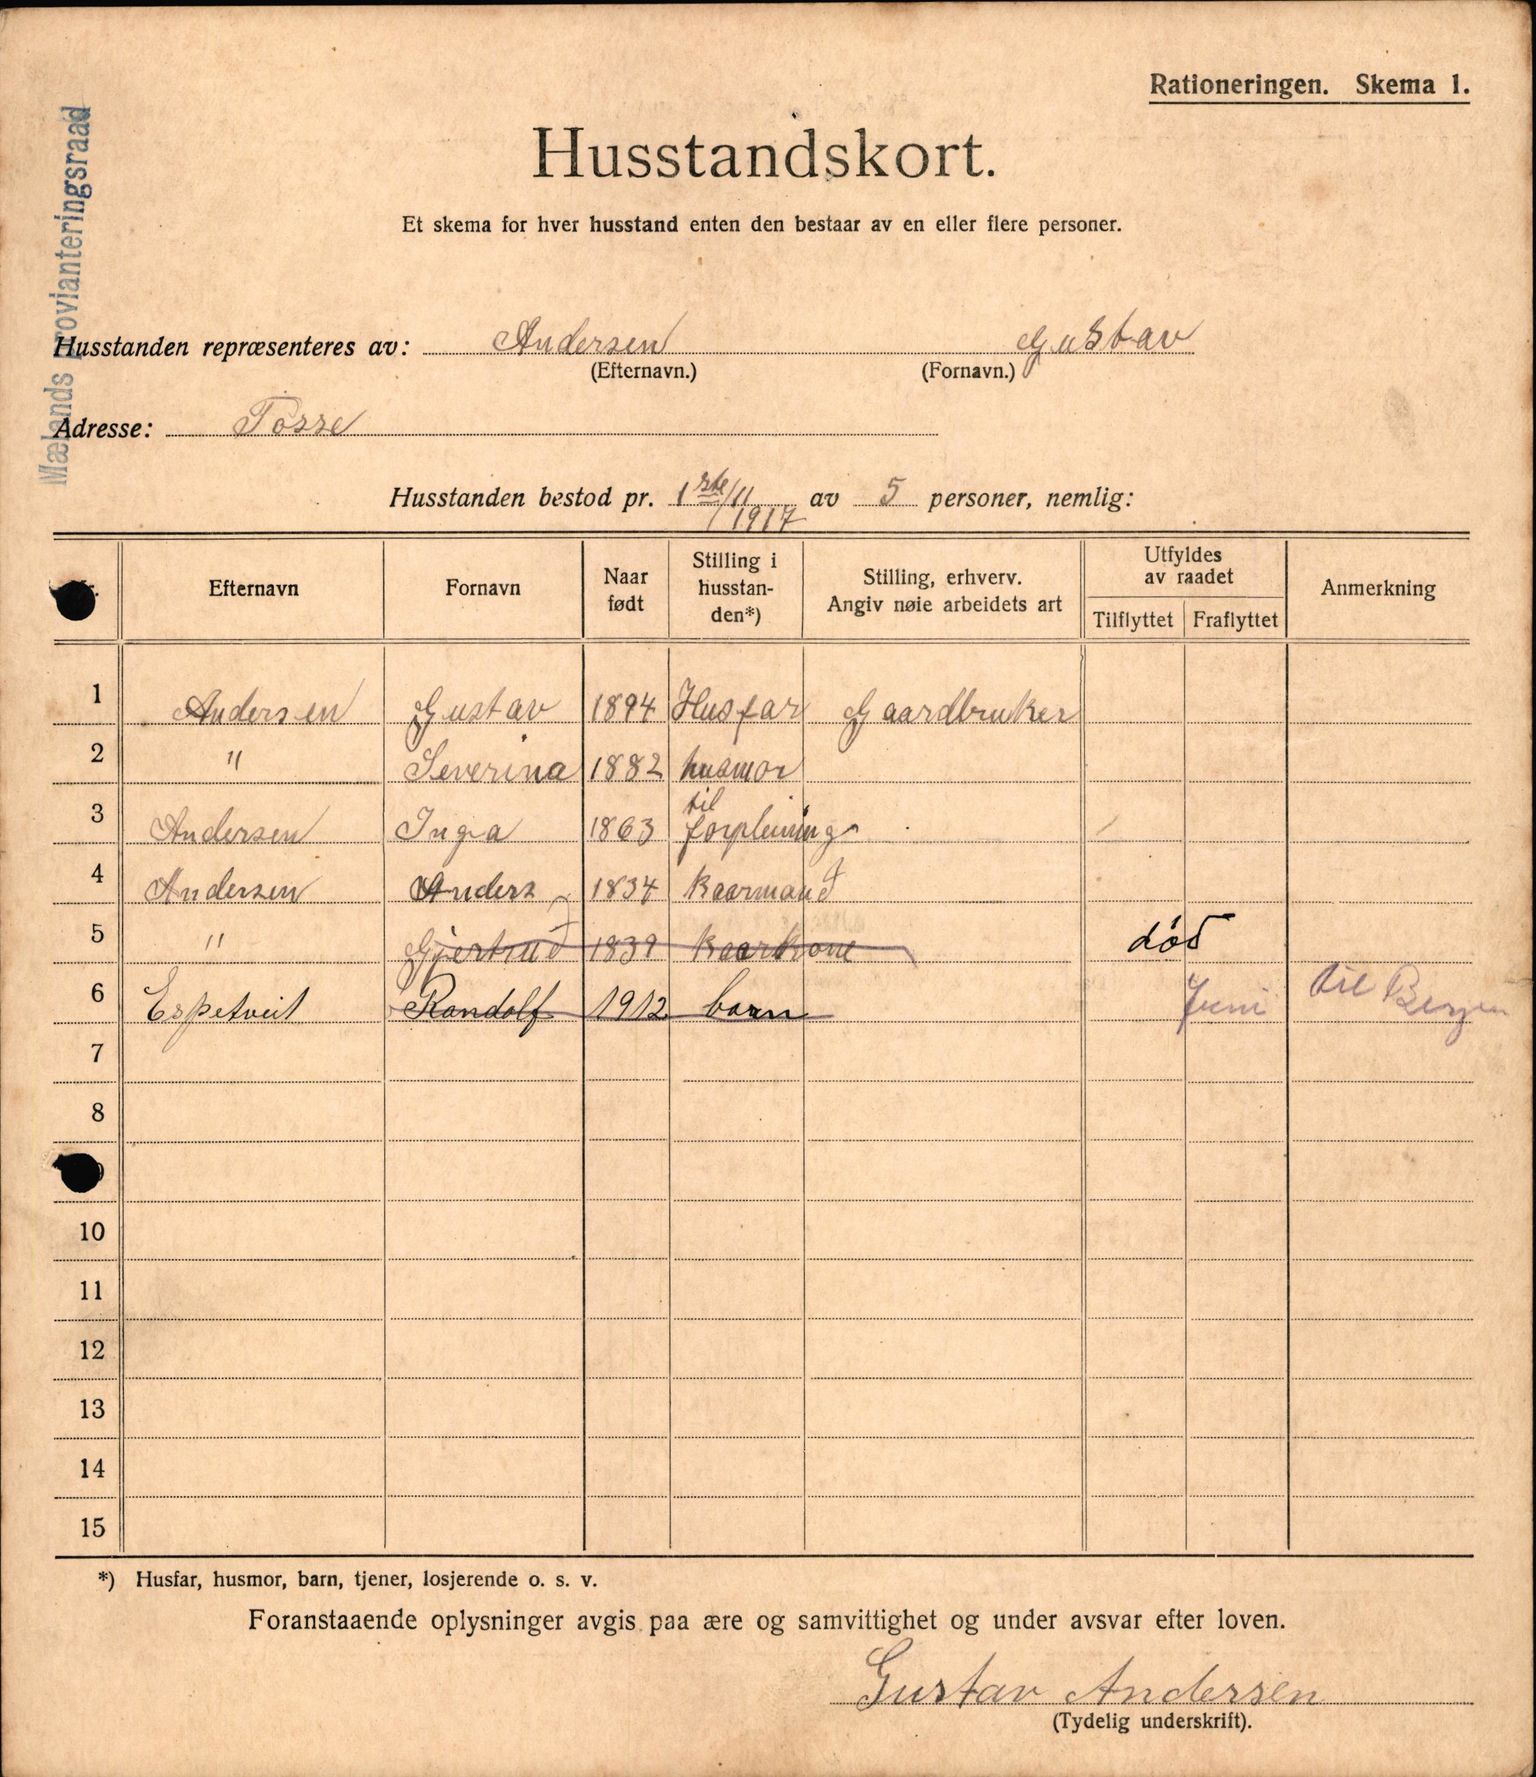 Rationeringen. Skema 1.
Mælands Provianteringsraad
Husstandskort.
Et skema for hver husstand enten den bestaar av en eller flere personer.
Husstanden repræsenteres av: Andersen Gustav
(Efternavn.) (Fornavn.)
Adresse: Tosse
Husstanden bestod pr. 1ste/11 1917 av 5 personer, nemlig:
Efternavn Fornavn Naar født Stilling i husstanden*) Stilling, erhverv. Angiv nøie arbeidets art Utfyldes av raadet Tilflyttet Fraflyttet Anmerkning
1 Andersen Gustav 1894 Husfar Gaardbruker
2 " Severina 1882 husmor
3 Andersen Inga 1863 til forpleining
4 Andersen Anders 1834 Kaarmand
5 " Gjertrud 1839 Kaarkone død
6 Espetveit Randolf 1912 barn Juni til Bergen
7
8
10
11
12
13
14
15
*) Husfar, husmor, barn, tjener, losjerende o. s. v.
Foranstaaende oplysninger avgis paa ære og samvittighet og under avsvar efter loven.
Gustav Andersen
(Tydelig underskrift).